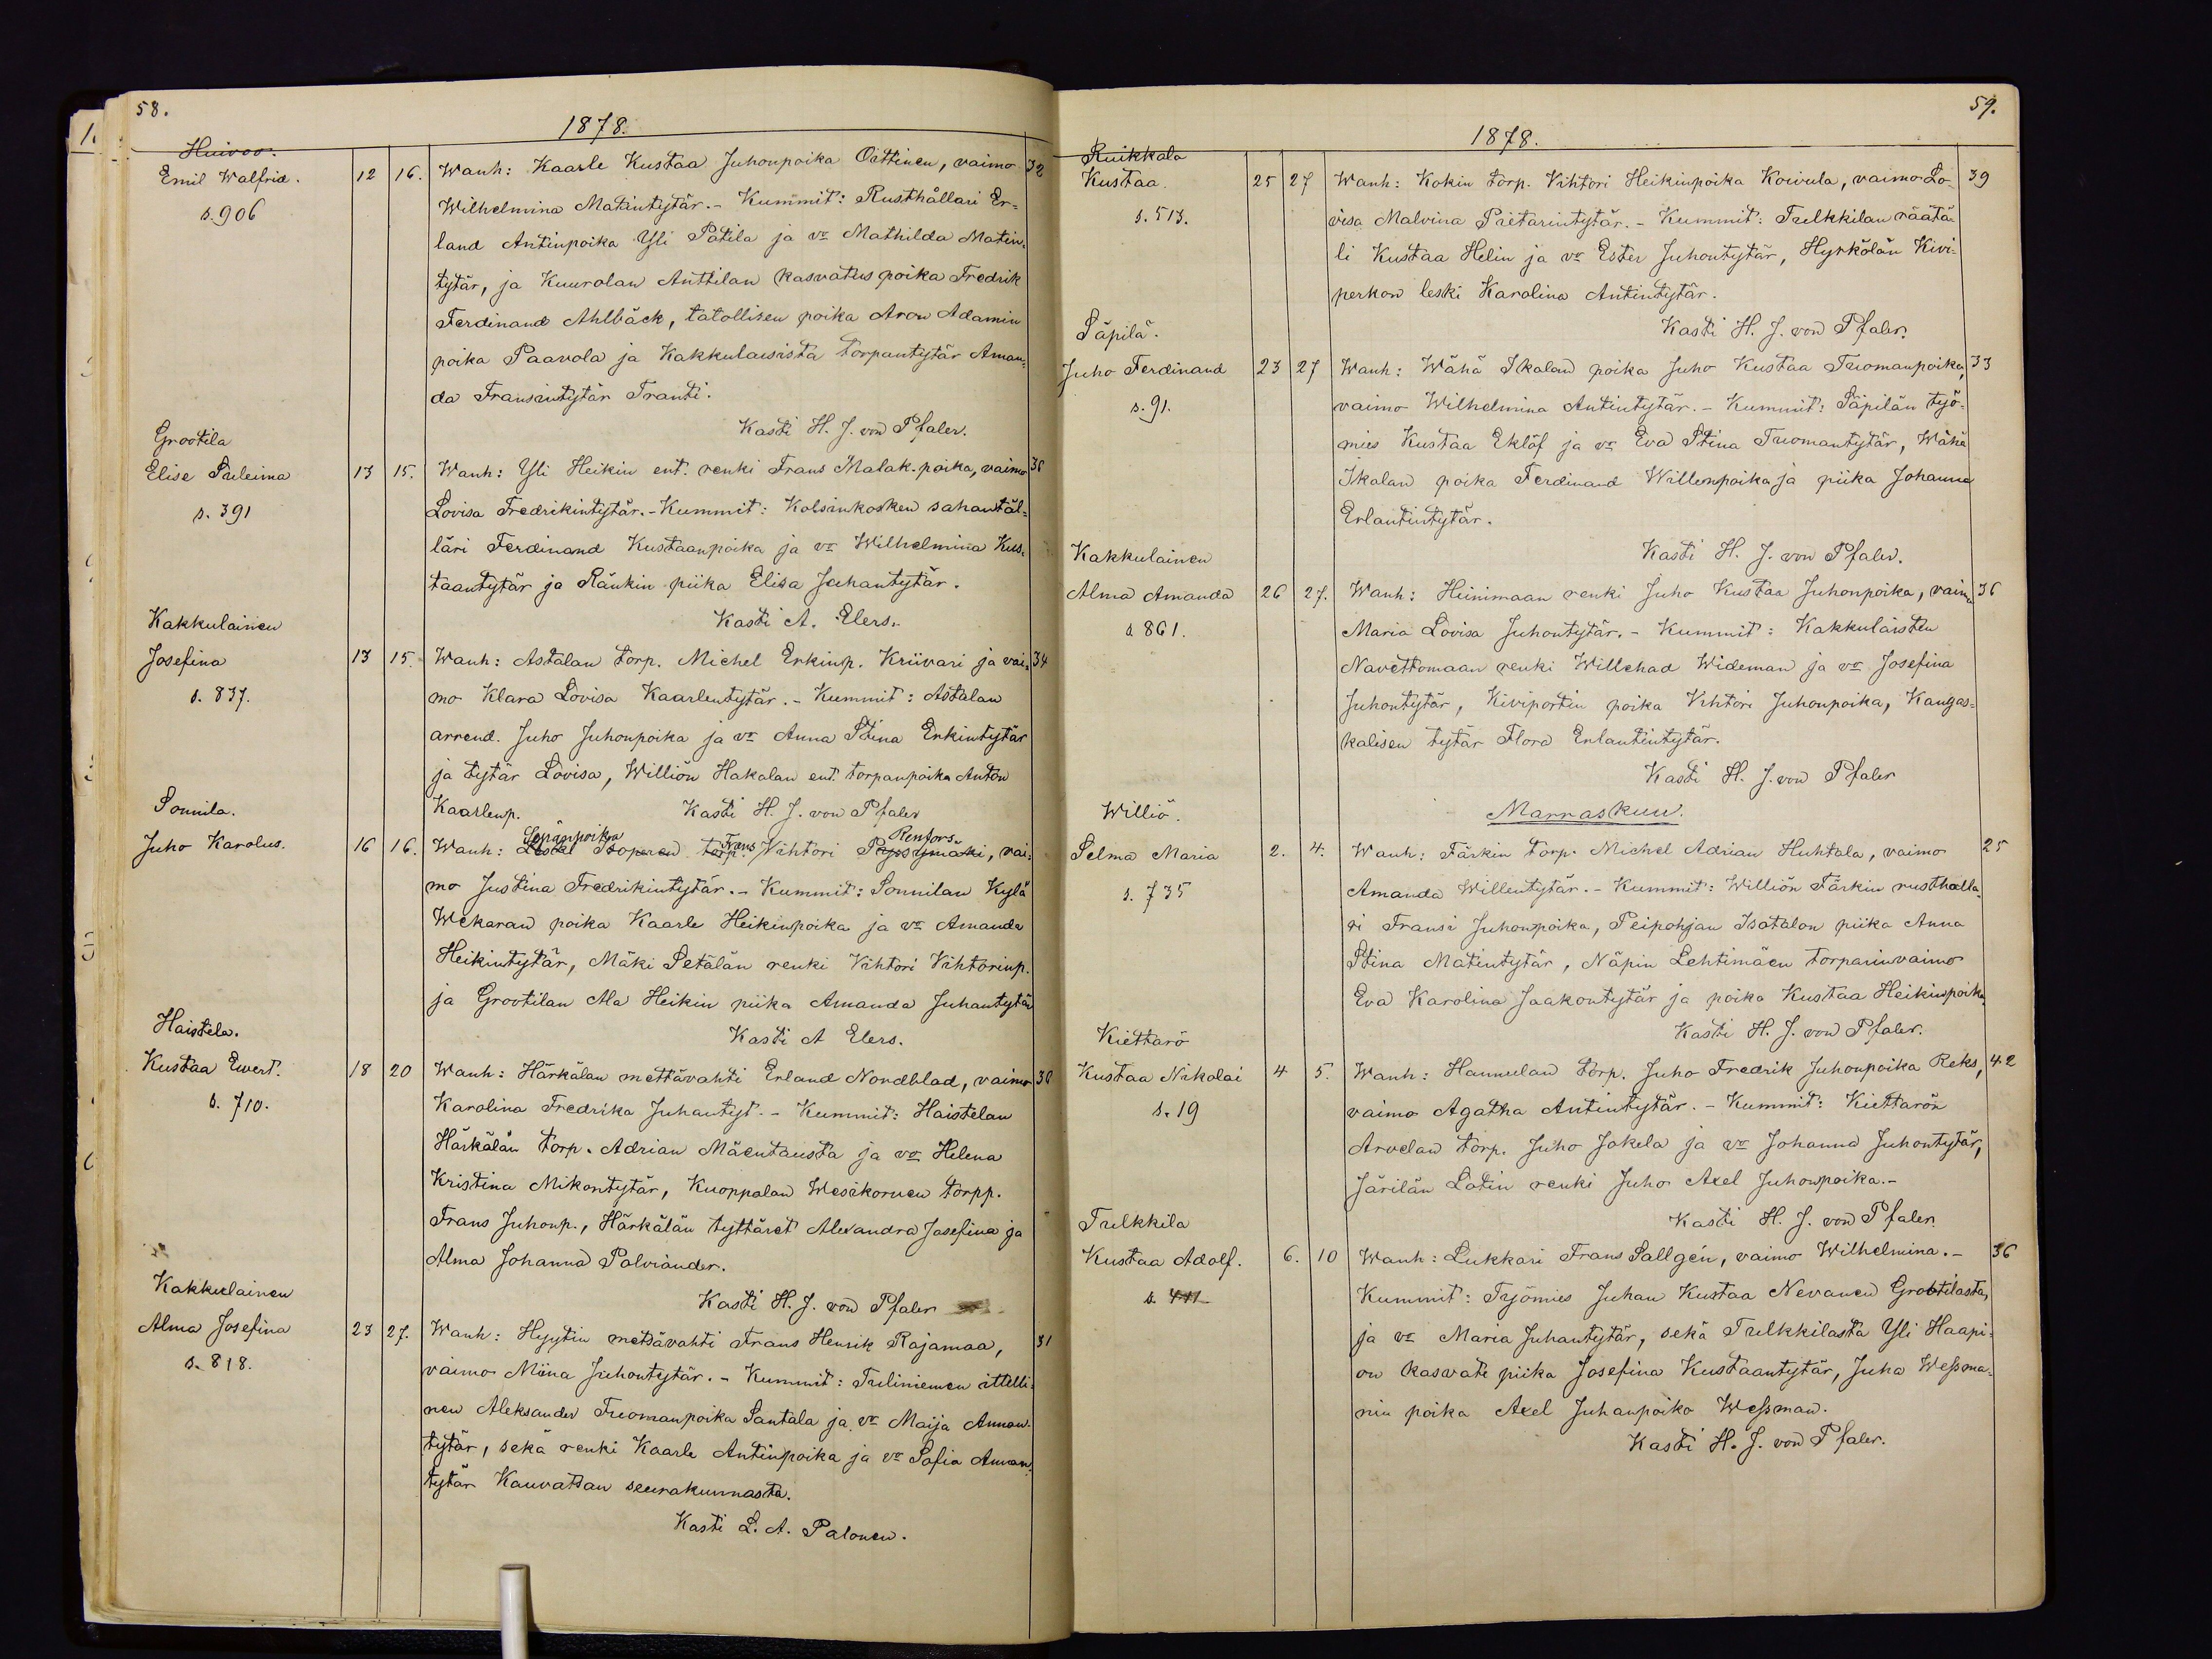 58.
1878.
Huivoo.
Emil Walfrid. 12 16. Wanh: Kaarle Kustaa Juhonpoika Oittinen, vaimo 32
s. 906 Wilhelmina Matintytär. - Kummit: Rusthållari Er=
land Antinpoika Yli Patila ja vo Mathilda Matin=
tytär, ja Kuurolan Anttilan kasvatuspoika Fredrik
Ferdinand Ahlbäck, talollisen poika Aron Adamin
poika Paavola ja Kakkulaisista torpantytär Aman=
da Fransintytär Tranti.
Kasti H. J. von Pfaler.
Grootila
Elise Suleima 13 15. Wanh: Yli Heikin ent. renki Frans Malak. poika, vaimo 36
s. 391 Lovisa Fredrikintytär. - Kummit: Kolsinkosken sahantäl=
läri Ferdinand Kustaanpoika ja vo Wilhelmina Kus=
taantytär ja Ränkin piika Elisa Juhantytär.
Kasti A. Elers.
Kakkulainen
Josefina 13 15. Wanh: Astalan torp. Michel Erkinp. Kriivari ja vai= 34
s. 837. mo Klara Lovisa Kaarlentytär. - Kummit: Astalan
arrend. Juho Juhonpoika ja vo Anna Stina Erkintytär
ja tytär Lovisa, Williön Hakalan ent. torpanpoika Anton
Kaarlenp. Kasti H. J. von Pfaler
Sonnila.
Sepänpoika Frans Renfors.
Juho Karolus. 16 16. Wanh: torp. Vihtori Pyssymäki, vai=
mo Justina Fredrikintytär. - Kummit: Sonnilan Kylä
Wekaran poika Kaarle Heikinpoika ja vo Amanda
Heikintytär, Mäki Setälän renki Vihtori Vihtorinp.
ja Grootilan Ala Heikin piika Amanda Juhantytär
Kasti A Elers.
Haistila.
Kustaa Ewert. 18 20 Wanh: Härkälän mettävahti Erland Nordblad, vaimo 36
s. 710. Karolina Fredrika Juhantyt. - Kummit: Haistelan
Härkälän torp. Adrian Mäentausta ja vo Helena
Kristina Mikontytär, Kuoppalan Wesikorven torpp.
Frans Juhonp., Härkälän tyttäret Alexandra Josefina ja
Alma Johanna Palviander.
Kasti H. J. von Pfaler
Kakkulainen
Alma Josefina 23 27. Wanh: Hyytin metsävahti Frans Henrik Rajamaa, 31
s. 818. vaimo Miina Juhontytär. - Kummit: Tuliniemen ittelli=
nen Aleksander Tuomanpoika Santala ja vo Maija Annan=
tytär, sekä renki Kaarle Antinpoika ja vo Sofia Annan=
tytär Kauvatsan seurakunnasta.
Kasti L. A. Palonen.
59.
1878.
Ruikkala
Kustaa. 25 27 Wanh: Kokin torp. Vihtori Heikinpoika Koivula, vaimo Lo= 39
s. 513. visa Malvina Pietarintytär. - Kummit: Tulkkilan räätä=
li Kustaa Helin ja vo Ester Juhontytär, Hyrkölän Kivi=
perkon leski Karolina Antintytär.
Kasti H. J. von Pfaler.
Säpilä.
Juho Ferdinand 23 27 Wanh: Wähä Ikalan poika Juho Kustaa Tuomanpoika, 33
s. 91. vaimo Wilhelmina Antintytär. - Kummit: Säpilän työ=
mies Kustaa Eklöf ja vo Eva Stina Tuomantytär, Wähä
Ikalan poika Ferdinand Willenpoika ja piika Johanna
Erlantintytär.
Kasti H. J. von Pfaler.
Kakkulainen
Alma Amanda 26 27. Wanh: Heinimaan renki Juho Kustaa Juhonpoika, vaimo 36
s 861. Maria Lovisa Juhontytär. - Kummit: Kakkulaisten
Navettomaan renki Willehad Wideman ja vo Josefina
Juhontytär, Kiviportin poika Vihtori Juhonpoika, Kangas=
kalisen tytär Flora Erlantintytär.
Kasti H. J. von Pfaler
Marraskuu.
Williö.
Selma Maria 2. 4. Wanh: Färkin torp. Michel Adrian Huhtala, vaimo 25
s. 735 Amanda Willentytär. - Kummit: Williön Färkin rusthålla=
ri Fransi Juhonpoika, Peipohjan Isotalon piika Anna
Stina Matintytär, Näpin Lehtimäen torparinvaimo
Eva Karolina Jaakontytär ja poika Kustaa Heikinpoika.
Kasti H. J. von Pfaler.
Kiettarö
Kustaa Nikolai 4 5. Wanh: Hannulan torp. Juho Fredrik Juhonpoika Reks, 42
s. 19 vaimo Agatha Antintytär. - Kummit: Kiettarön
Arvelan torp. Juho Jokela ja vo Johanna Juhontytär,
Järilän Latin renki Juho Axel Juhonpoika. -
Kasti H. J. von Pfaler.
Tulkkila
Kustaa Adolf. 6. 10 Wanh: Lukkari Frans Sallgén, vaimo Wilhelmina. - 36
s. 411 Kummit: Työmies Juhan Kustaa Nevanen Grootilasta,
ja vo Maria Juhantytär, sekä Tulkkilasta Yli Haapi=
on kasvate piika Josefina Kustaantytär, Juha Wessma=
nin poika Axel Juhanpoika Wessman.
Kasti H. J. von Pfaler.